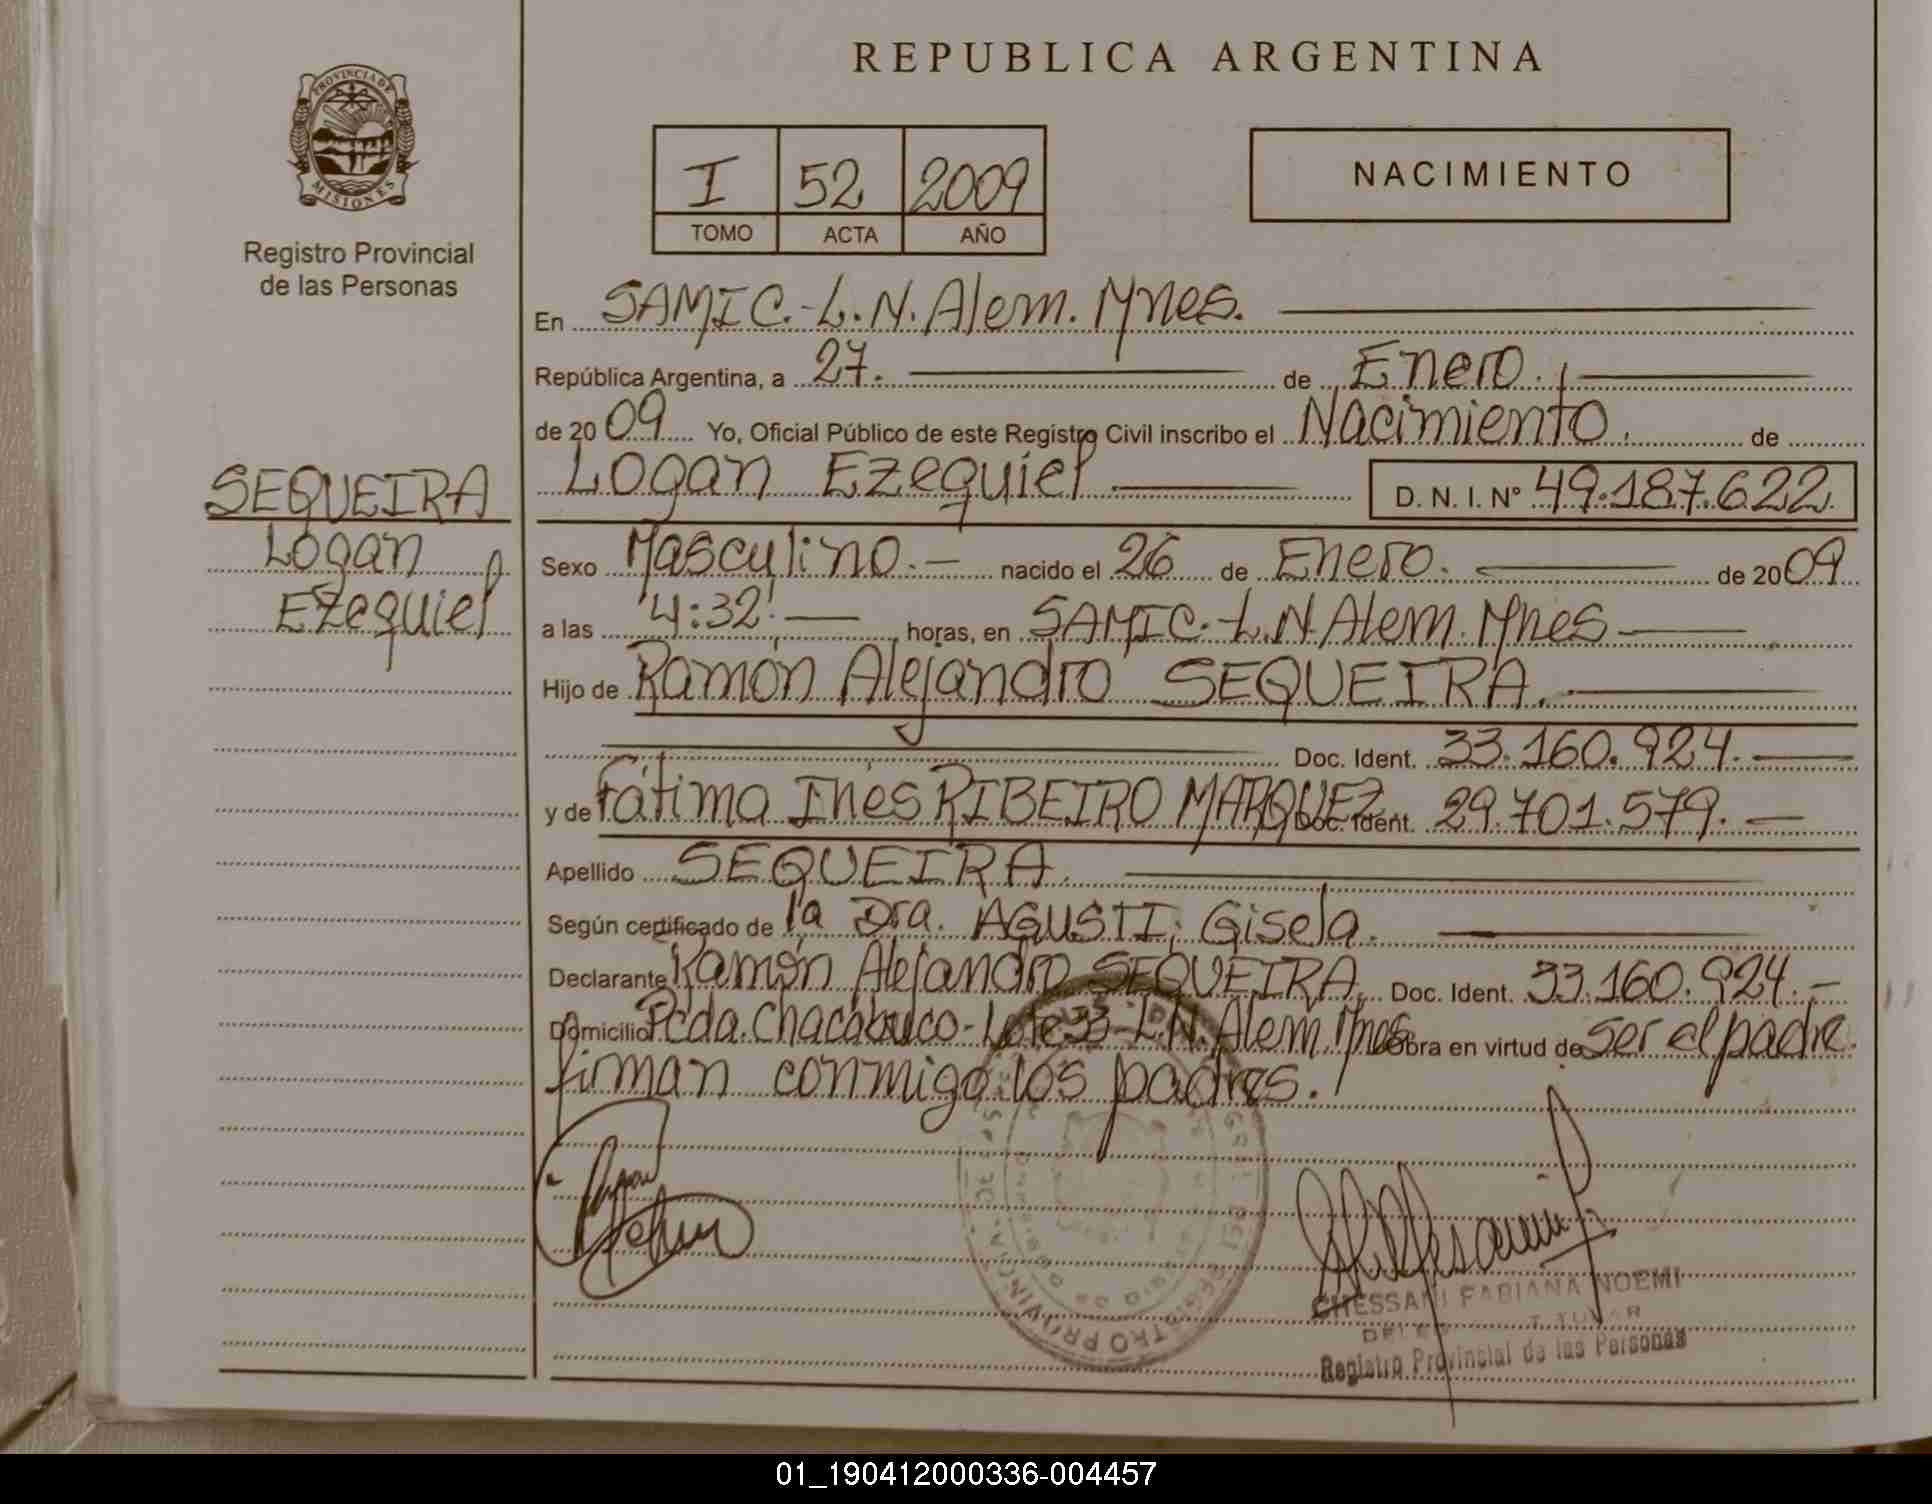 REPUBLICA ARGENTINA
PROVINCIA DE
MISIONES
Registro Provincial
de las Personas
I 52 2009
TOMO ACTA AÑO
NACIMIENTO
En SAMIC.-L.N.Alem.Mnes.
República Argentina, a 27. de Enero.
de 2009 Yo, Oficial Público de este Registro Civil inscribo el Nacimiento. de
Logan Ezequiel D. N. I. Nº 49.187.622.
SEQUEIRA
Logan
Ezequiel
Sexo Masculino.- nacido el 26 de Enero. de 2009
a las 4:32' horas, en SAMIC.-L.N.Alem.Mnes
Hijo de Ramón Alejandro SEQUEIRA.
Doc. Ident. 33.160.924.
y de Fátima Inés RIBEIRO MARQUEZ Doc. Ident. 29.701.579.
Apellido SEQUEIRA.
Según certificado de la Dra. AGUSTI, Gisela.
Declarante Ramón Alejandro SEQUEIRA. Doc. Ident. 33.160.924.-
Domicilio Pcda. Chacabuco-Lote 33-L.N.Alem.Mnes Obra en virtud de ser el padre.
firman conmigo los padres.
CHESSANI FABIANA NOEMI
Registro Provincial de las Personas
01_190412000336-004457